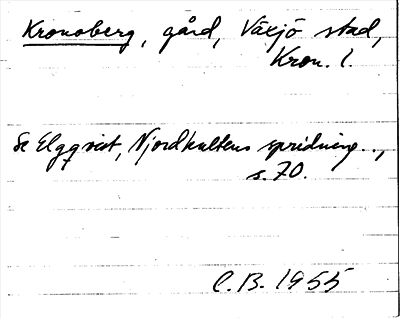 Kronoberg, gård, Växjö stad,
Kron. l.
Se Elgqvist, Njordkultens spridning..,
s. 70.
C.B. 1955